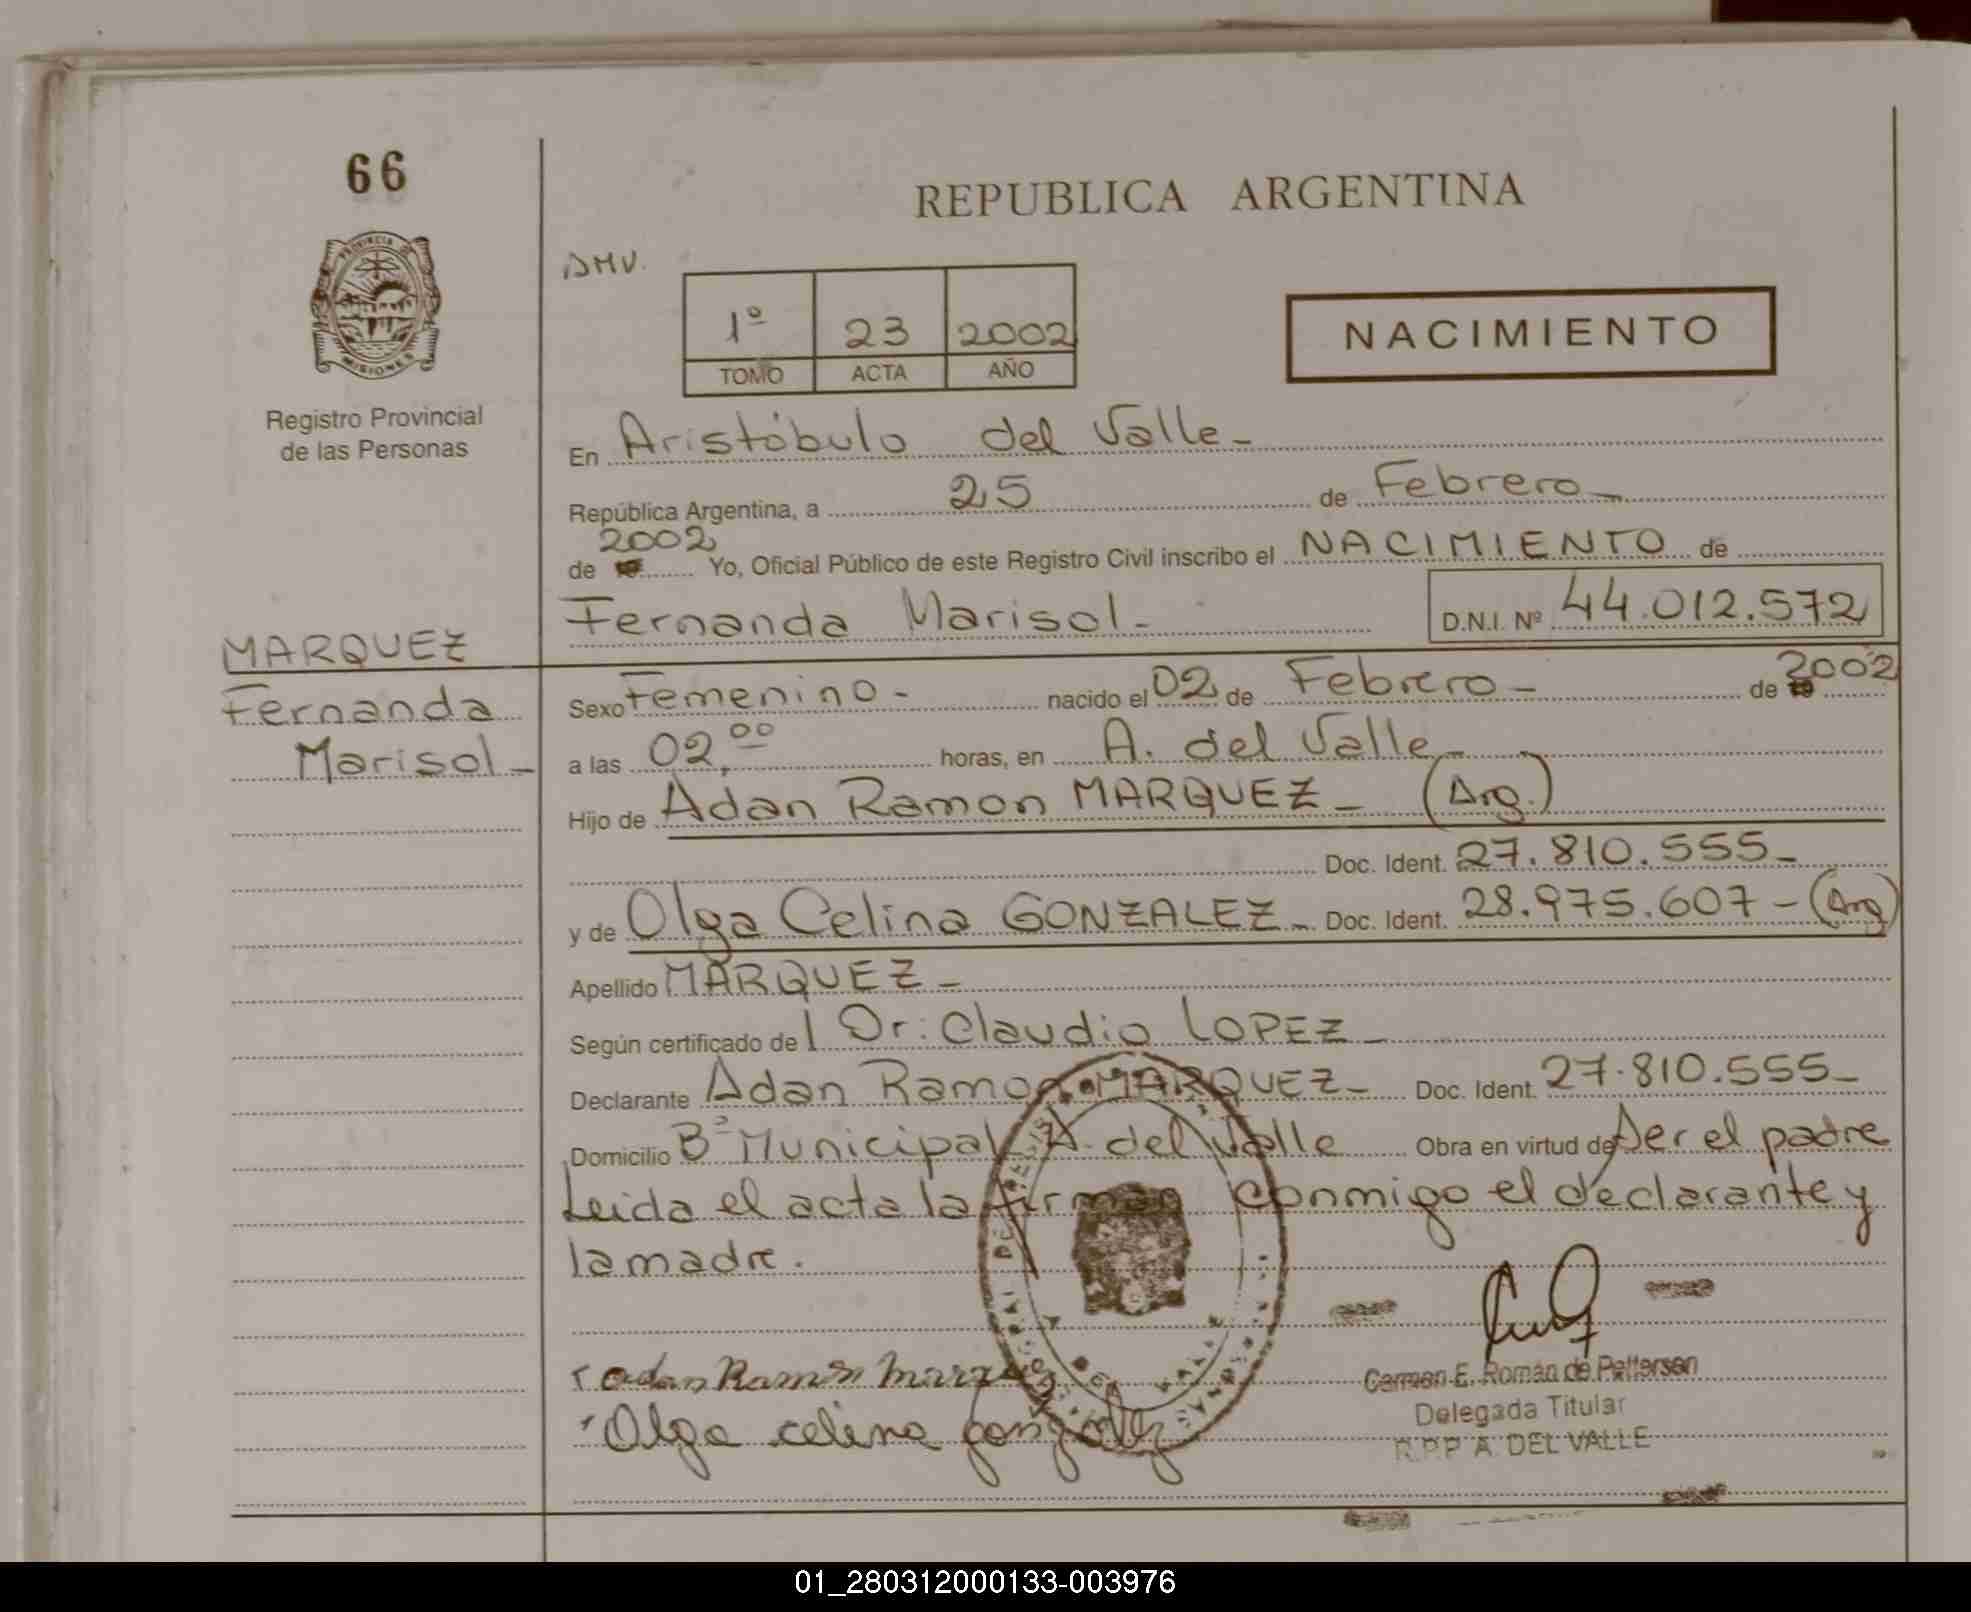 66
REPUBLICA ARGENTINA
PROVINCIA DE
MISIONES
Registro Provincial
de las Personas
DMV.
1º 23 2002
TOMO ACTA AÑO
NACIMIENTO
En Aristóbulo del Valle-
República Argentina, a 25 de Febrero-
2002
de 19 Yo, Oficial Público de este Registro Civil inscribo el NACIMIENTO de
Fernanda Marisol- D.N.I. Nº 44.012.572
MARQUEZ
Fernanda
Marisol-
Sexo Femenino- nacido el 02 de Febrero- de 19 2002
a las 02,00 horas, en A. del Valle-
Hijo de Adan Ramon MARQUEZ- (Arg.)
Doc. Ident. 27.810.555-
y de Olga Celina GONZALEZ- Doc. Ident. 28.975.607-(Arg)
Apellido MARQUEZ-
Según certificado de l Dr: Claudio LOPEZ-
Declarante Adan Ramon MARQUEZ- Doc. Ident. 27.810.555-
Domicilio Bº Municipal A. del Valle Obra en virtud de ser el padre
Leida el acta la firman conmigo el declarante y
la madre.
adan Ramon Marquez
Olga celina gonzalez
Carmen E. Román de Petterson
Delegada Titular
R.P.P A. DEL VALLE
01_280312000133-003976